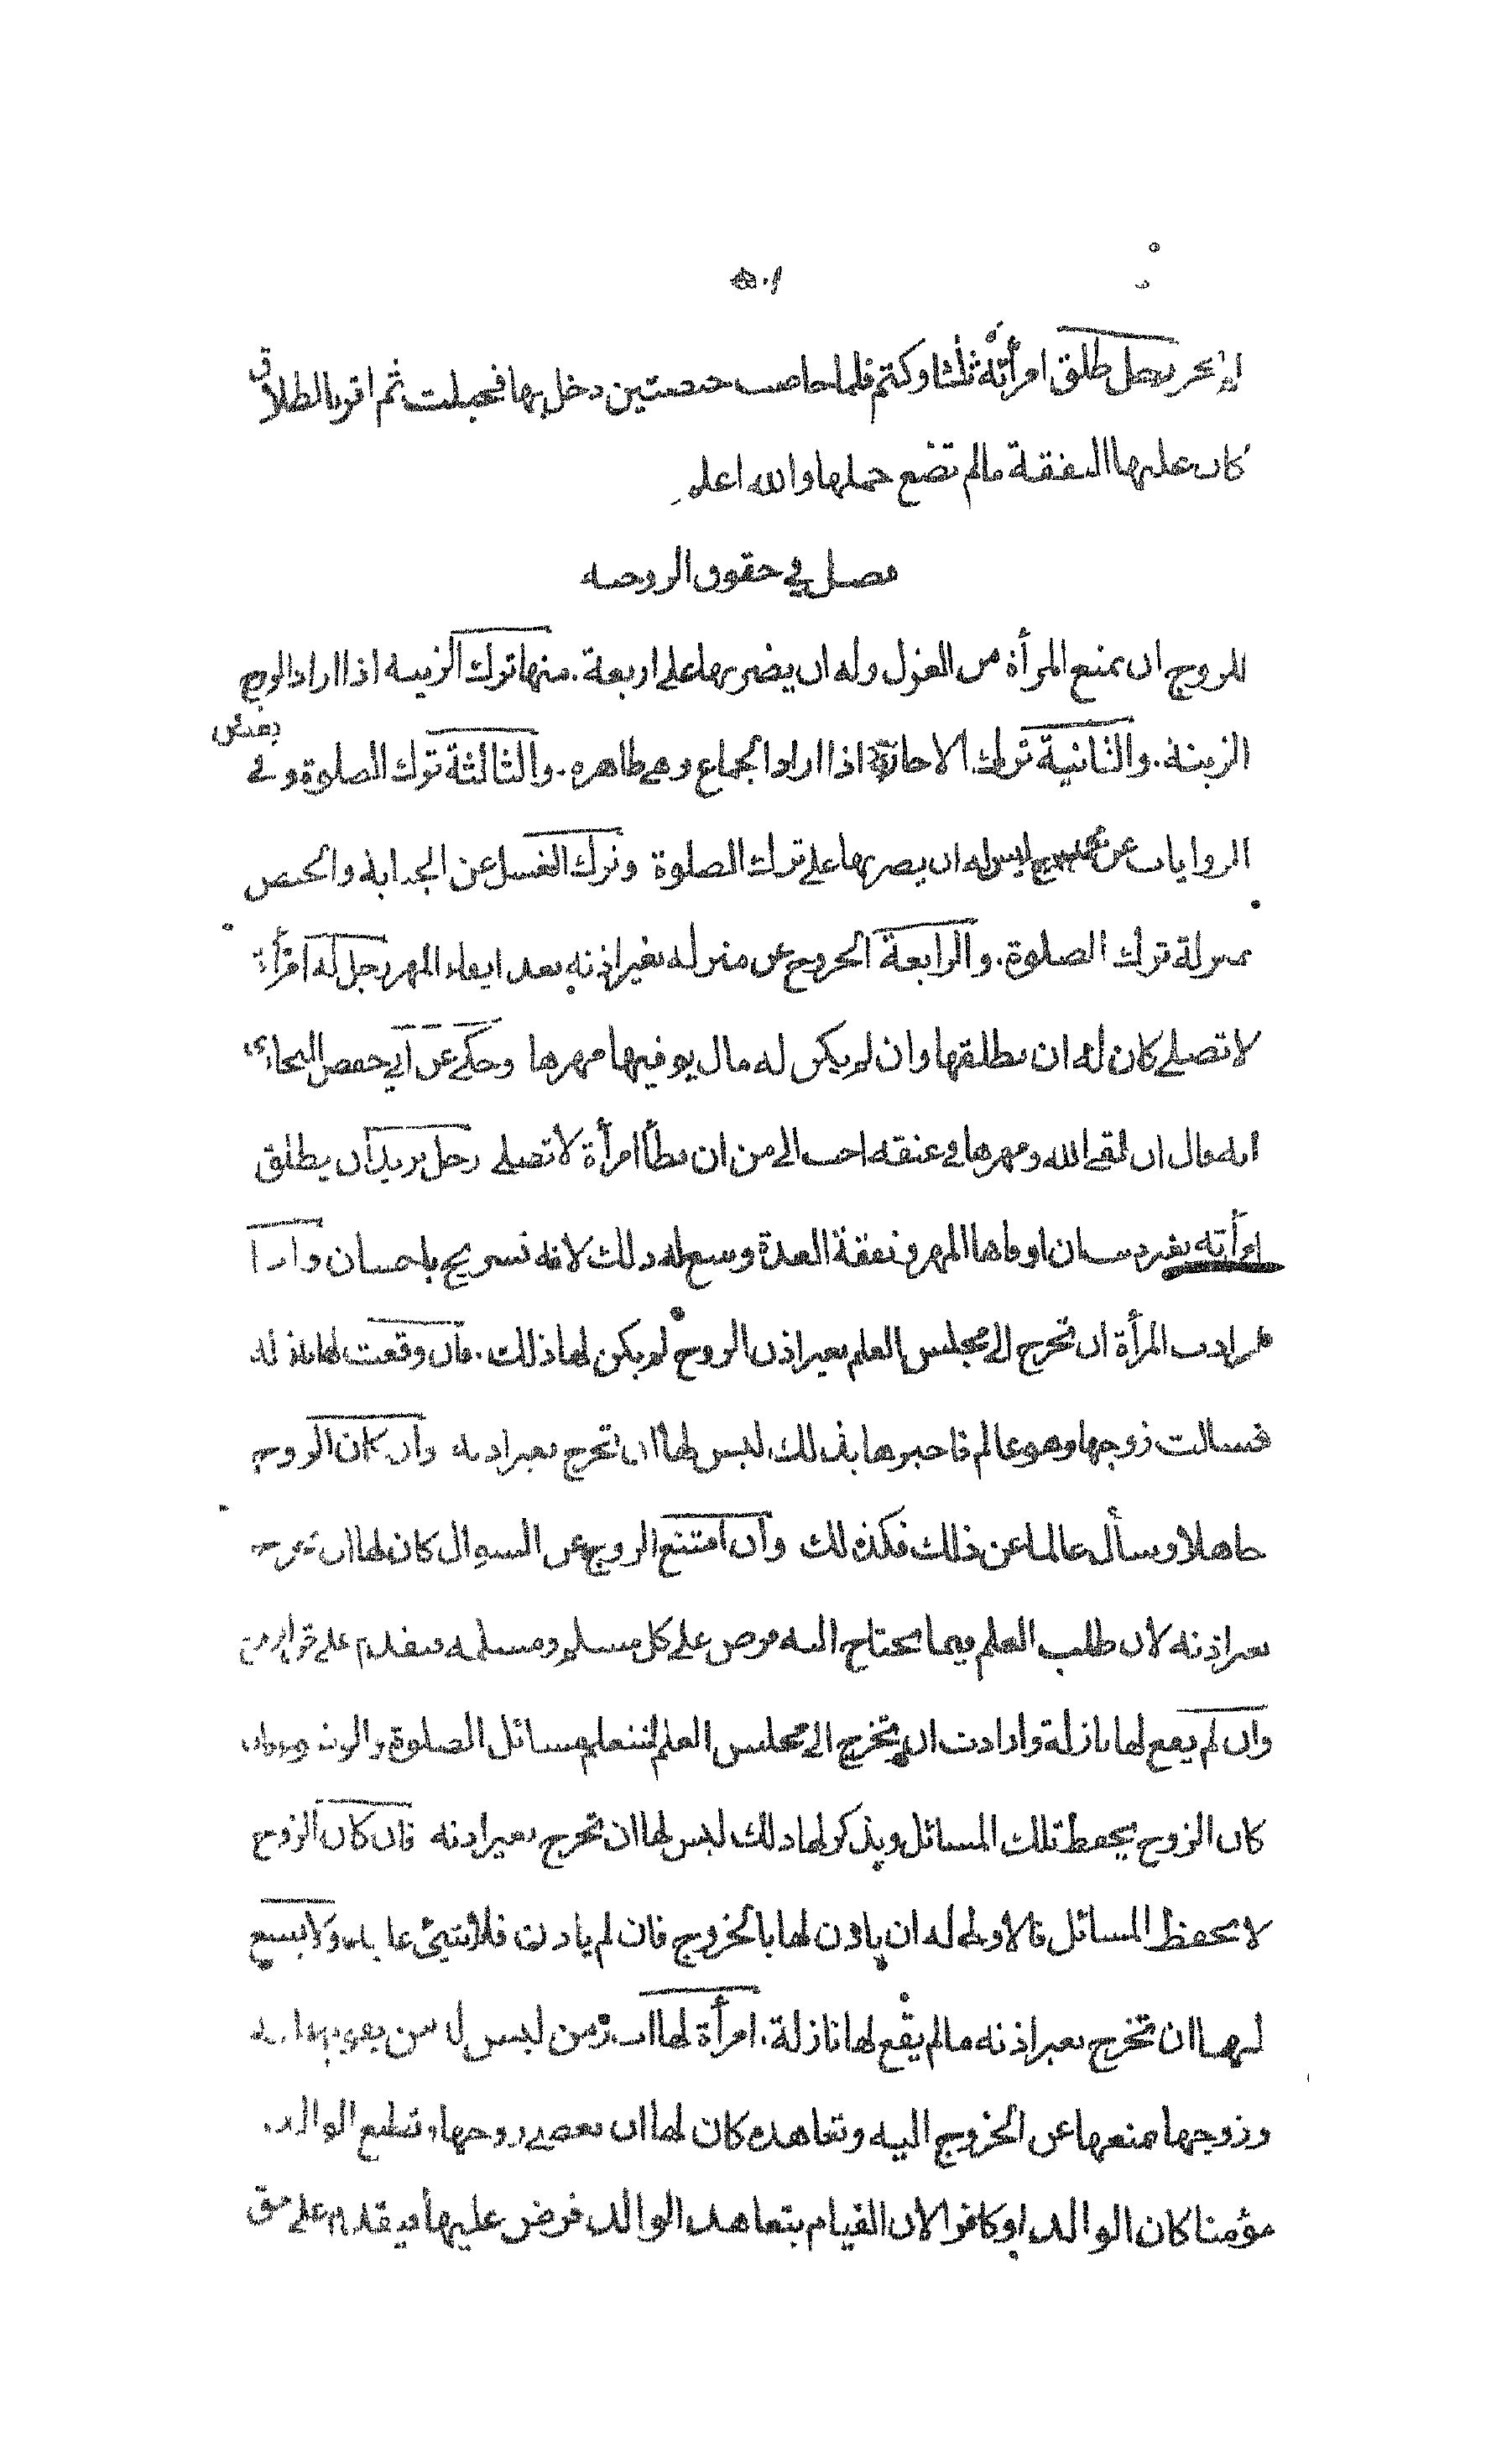 رجل طلق امرأته ثلثا وكتم فلما حاضت حيضتين دخل بها فحبلت ثم اقر بالطلاق
كان عليها النفقة مالم تضع حملها والله اعلم
فصل في حقوق الزوجية
للزوج ان يمنع المرأة من الغزل وله ان يضربها على اربعة. منها ترك الزينة اذا اراد الزوج
الزينة. والثانية ترك الاجابة اذا اراد الجماع وهي طاهرة. والثالثة ترك الصلوة وفي بعض
الروايات عن محمد ليس له ان يضربها على ترك الصلوة وترك الغسل عن الجنابة والحيض
بمنزلة ترك الصلوة. والرابعة الخروج عن منزله بغير اذنه بعد ايفاء المهر رجل له امرأة
لا تصلي كان له ان يطلقها وان لم يكن له مال يوفيها مهرها وحكي عن ابي حفص البخاري
انه قال ان لقي الله ومهرها في عنقه احب الي من ان يطأ امرأة لا تصلي رجل يريد ان يطلق
امرأته بغير ان اوفاها المهر ونفقة العدة وسع له ذلك لانه تسريح باحسان واذا
ارادت المرأة ان تخرج الى مجلس العلم بغير اذن الزوج لم يكن لها ذلك. فان وقعت لها نازلة
فسالت زوجها وهو عالم فاخبرها بذلك ليس لها ان تخرج بغير اذنه وان كان الزوج
جاهلا وسأل عالما عن ذلك فكذلك وان امتنع الزوج عن السوال كان لها ان تخرج
بغير اذنه لان طلب العلم فيما يحتاج اليه فرض على كل مسلم ومسلمة فيقدم على
وان لم يقع لها نازلة وارادت ان تخرج الى مجلس العلم لتتعلم مسائل الصلوة والوضوء فان
كان الزوج يحفظ تلك المسائل ويذكر لها ذلك ليس لها ان تخرج بغير اذنه فان كان الزوج
لا يحفظ المسائل فالاولى له ان يأذن لها بالخروج فان لم يأذن فلا شيئ عليه ولا يسع
لها ان تخرج بغير اذنه مالم يقع لها نازلة. امرأة لها اب زمن ليس له من يقوم عليه
وزوجها يمنعها عن الخروج اليه وتعاهده كان لها ان تعصي زوجها وتطيع الوالد
مؤمنا كان الوالد او كافرا لان القيام بتعاهد الوالد فرض عليها فيقدم على حق